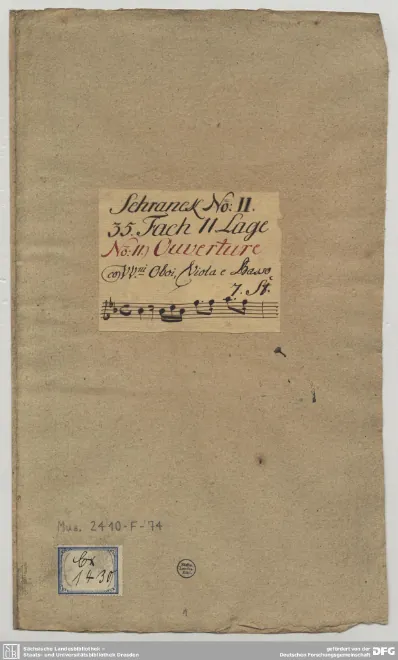 Schranck No: II.
35. Fach 11 Lage
No: 11) Ouverture
co VV.ni Oboi, Viola e Basso
7. St.
Mus. 2410-F-74
Cx
1430
1
Sächsische Landesbibliothek –
Staats- und Universitätsbibliothek Dresden
gefördert von der
Deutschen Forschungsgemeinschaft
DFG